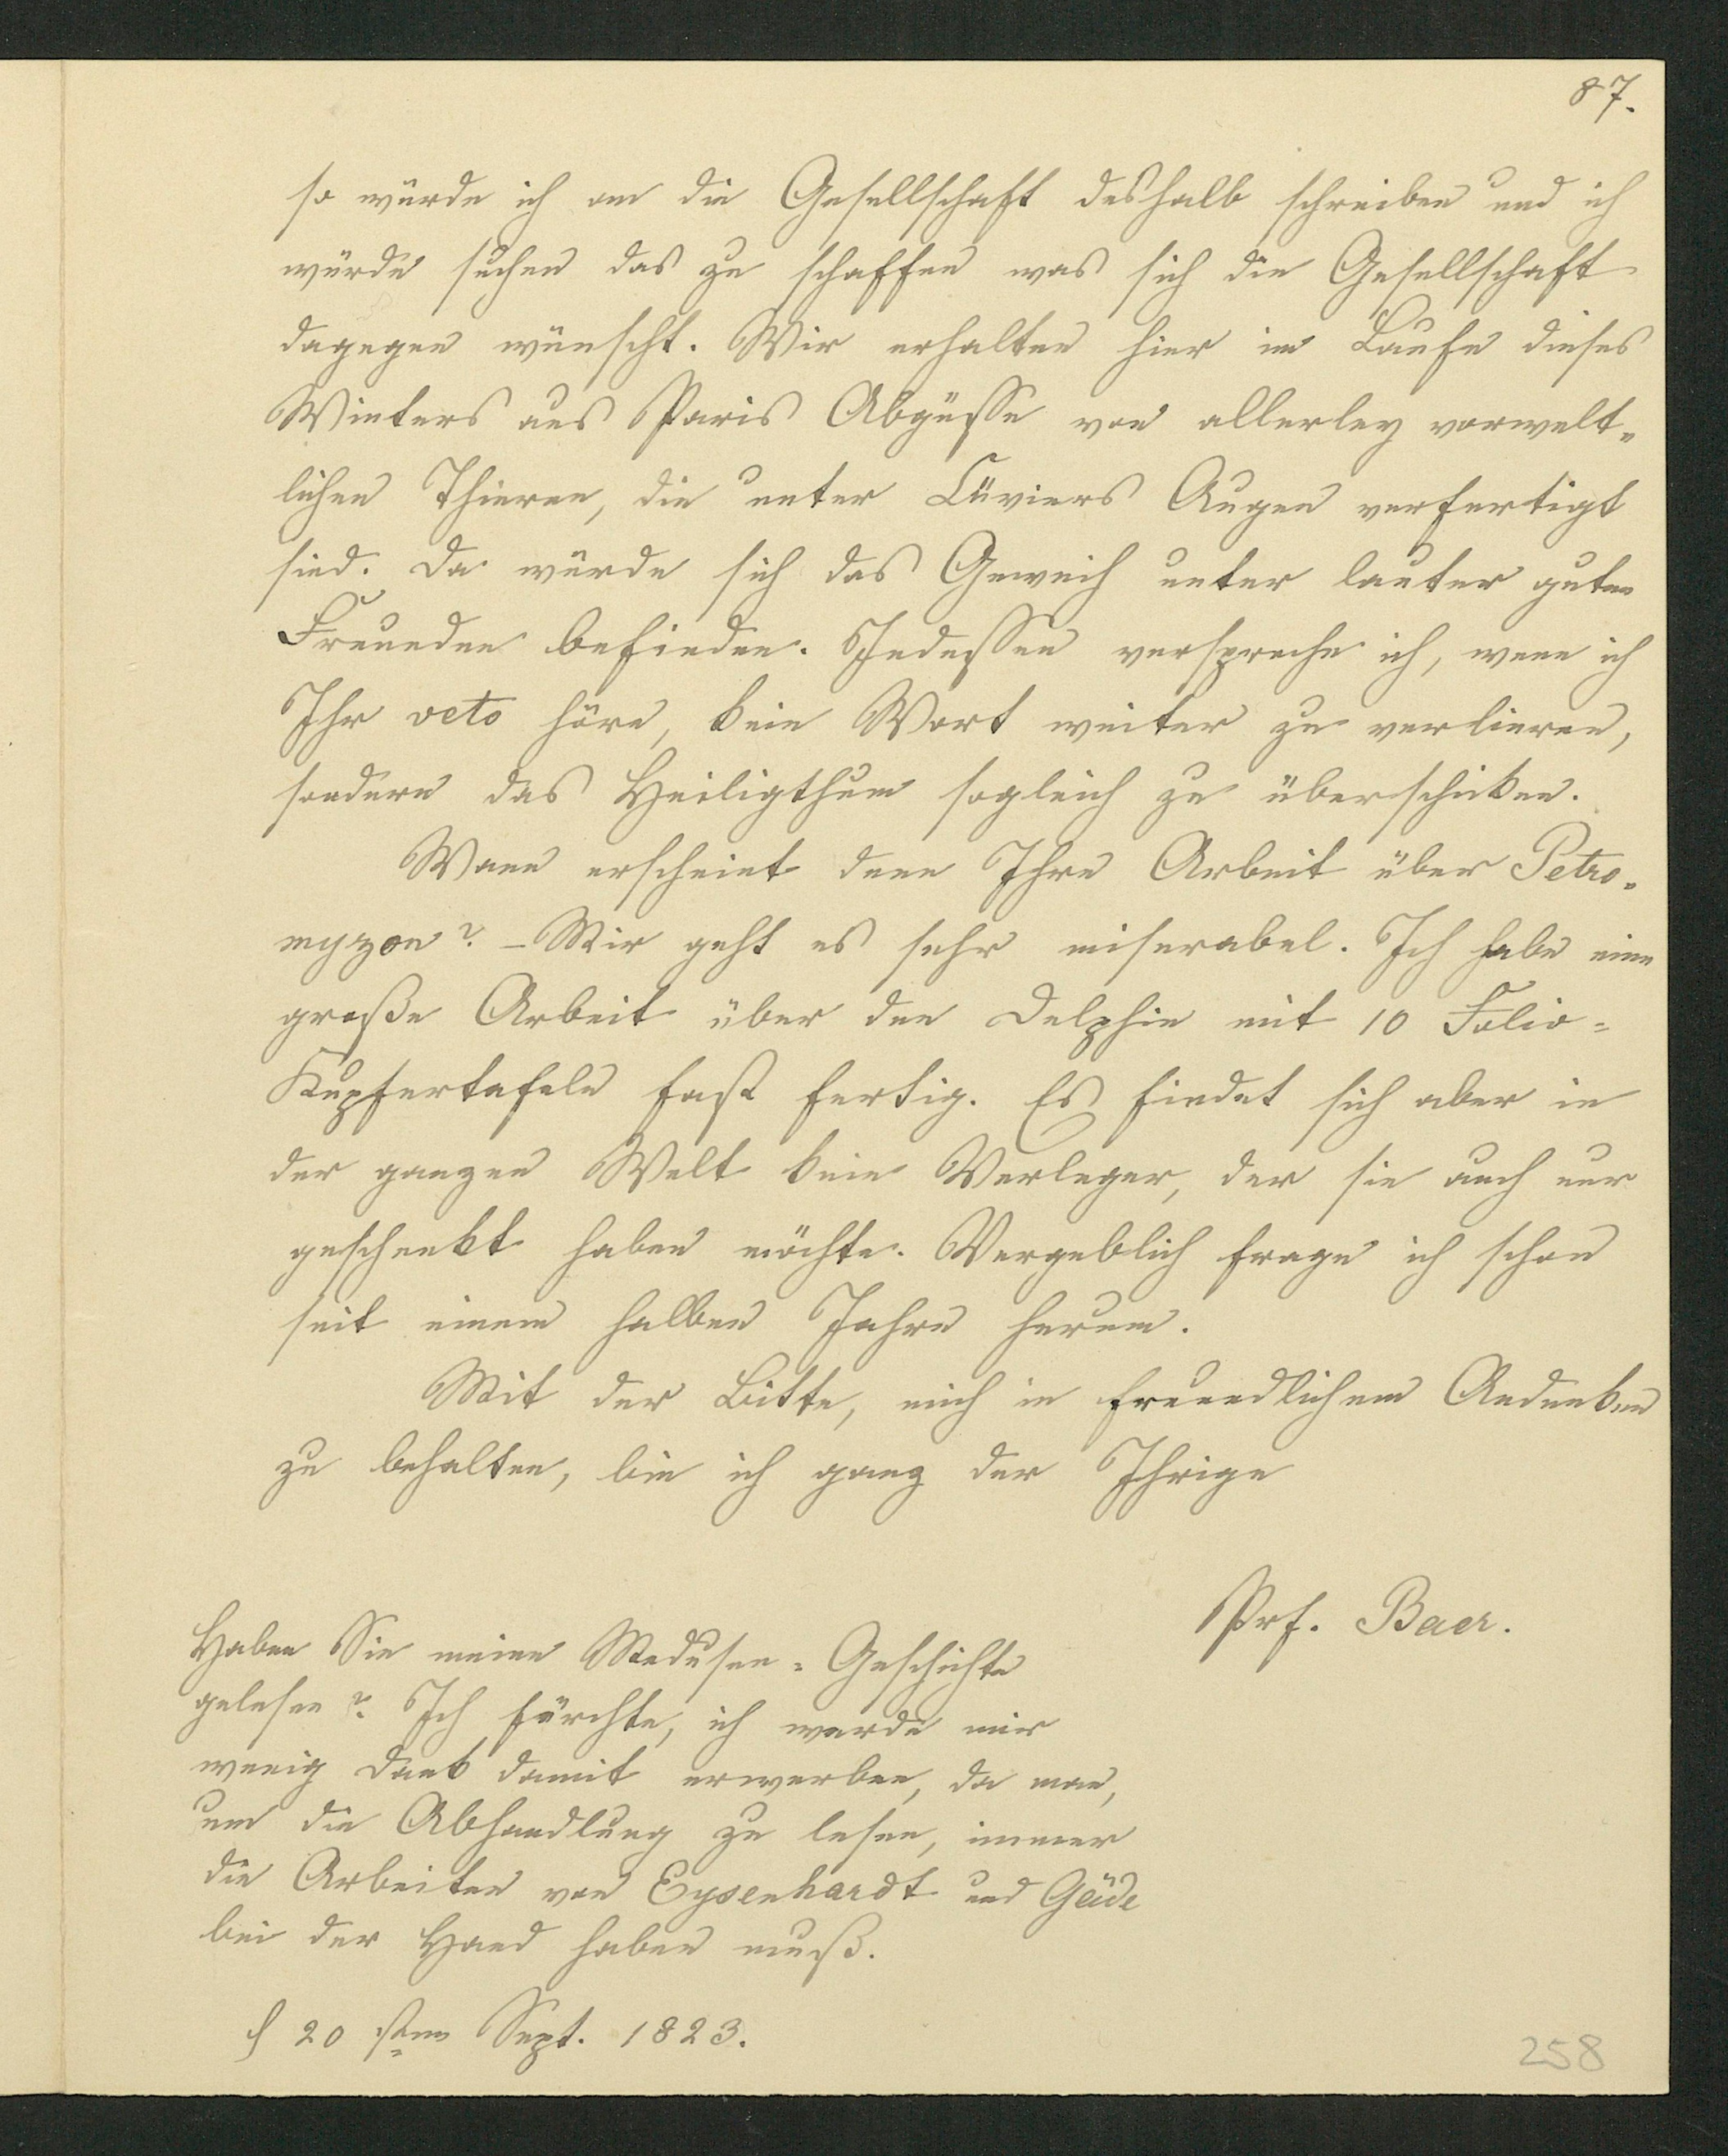 87.
so würde ich an die Gesellschaft deshalb schreiben und ich
würde suchen das zu schaffen was sich die Gesellschaft
dagegen wünscht. Wir erhalten hier im Laufe dieses
Winters aus Paris Abgüsse von allerley vorwelt-
lichen Thieren, die unter Cüviers Augen verfertigt
sind. Da würde sich das Geweih unter lauter guten
Freunden befinden. Indessen verspreche ich, wenn ich
Ihr veto höre, kein Wort weiter zu verlieren,
sondern das Heiligthum sogleich zu überschicken.
Wann erscheint denn Ihre Arbeit über Petro-
myzon? - Mir geht es sehr miserabel. Ich habe eine
große Arbeit über den Delphin mit 10 Folio-
Kupfertafeln fast fertig. Es findet sich aber in
der ganzen Welt kein Verleger, der sie auch nur
geschenkt haben möchte. Vergeblich frage ich schon
seit einem halben Jahre herum.
Mit der Bitte, mich in freundlichem Andenken
zu behalten, bin ich ganz der Ihrige
Prf. Baer.
Haben Sie meine Medusen-Geschichte
gelesen? Ich fürchte, ich werde mir
wenig Dank damit erwerben, da man,
um die Abhandlung zu lesen, immer
die Arbeiten von Eysenhardt und Gäde
bei der Hand haben muß.
20 sten Sept. 1823.
258